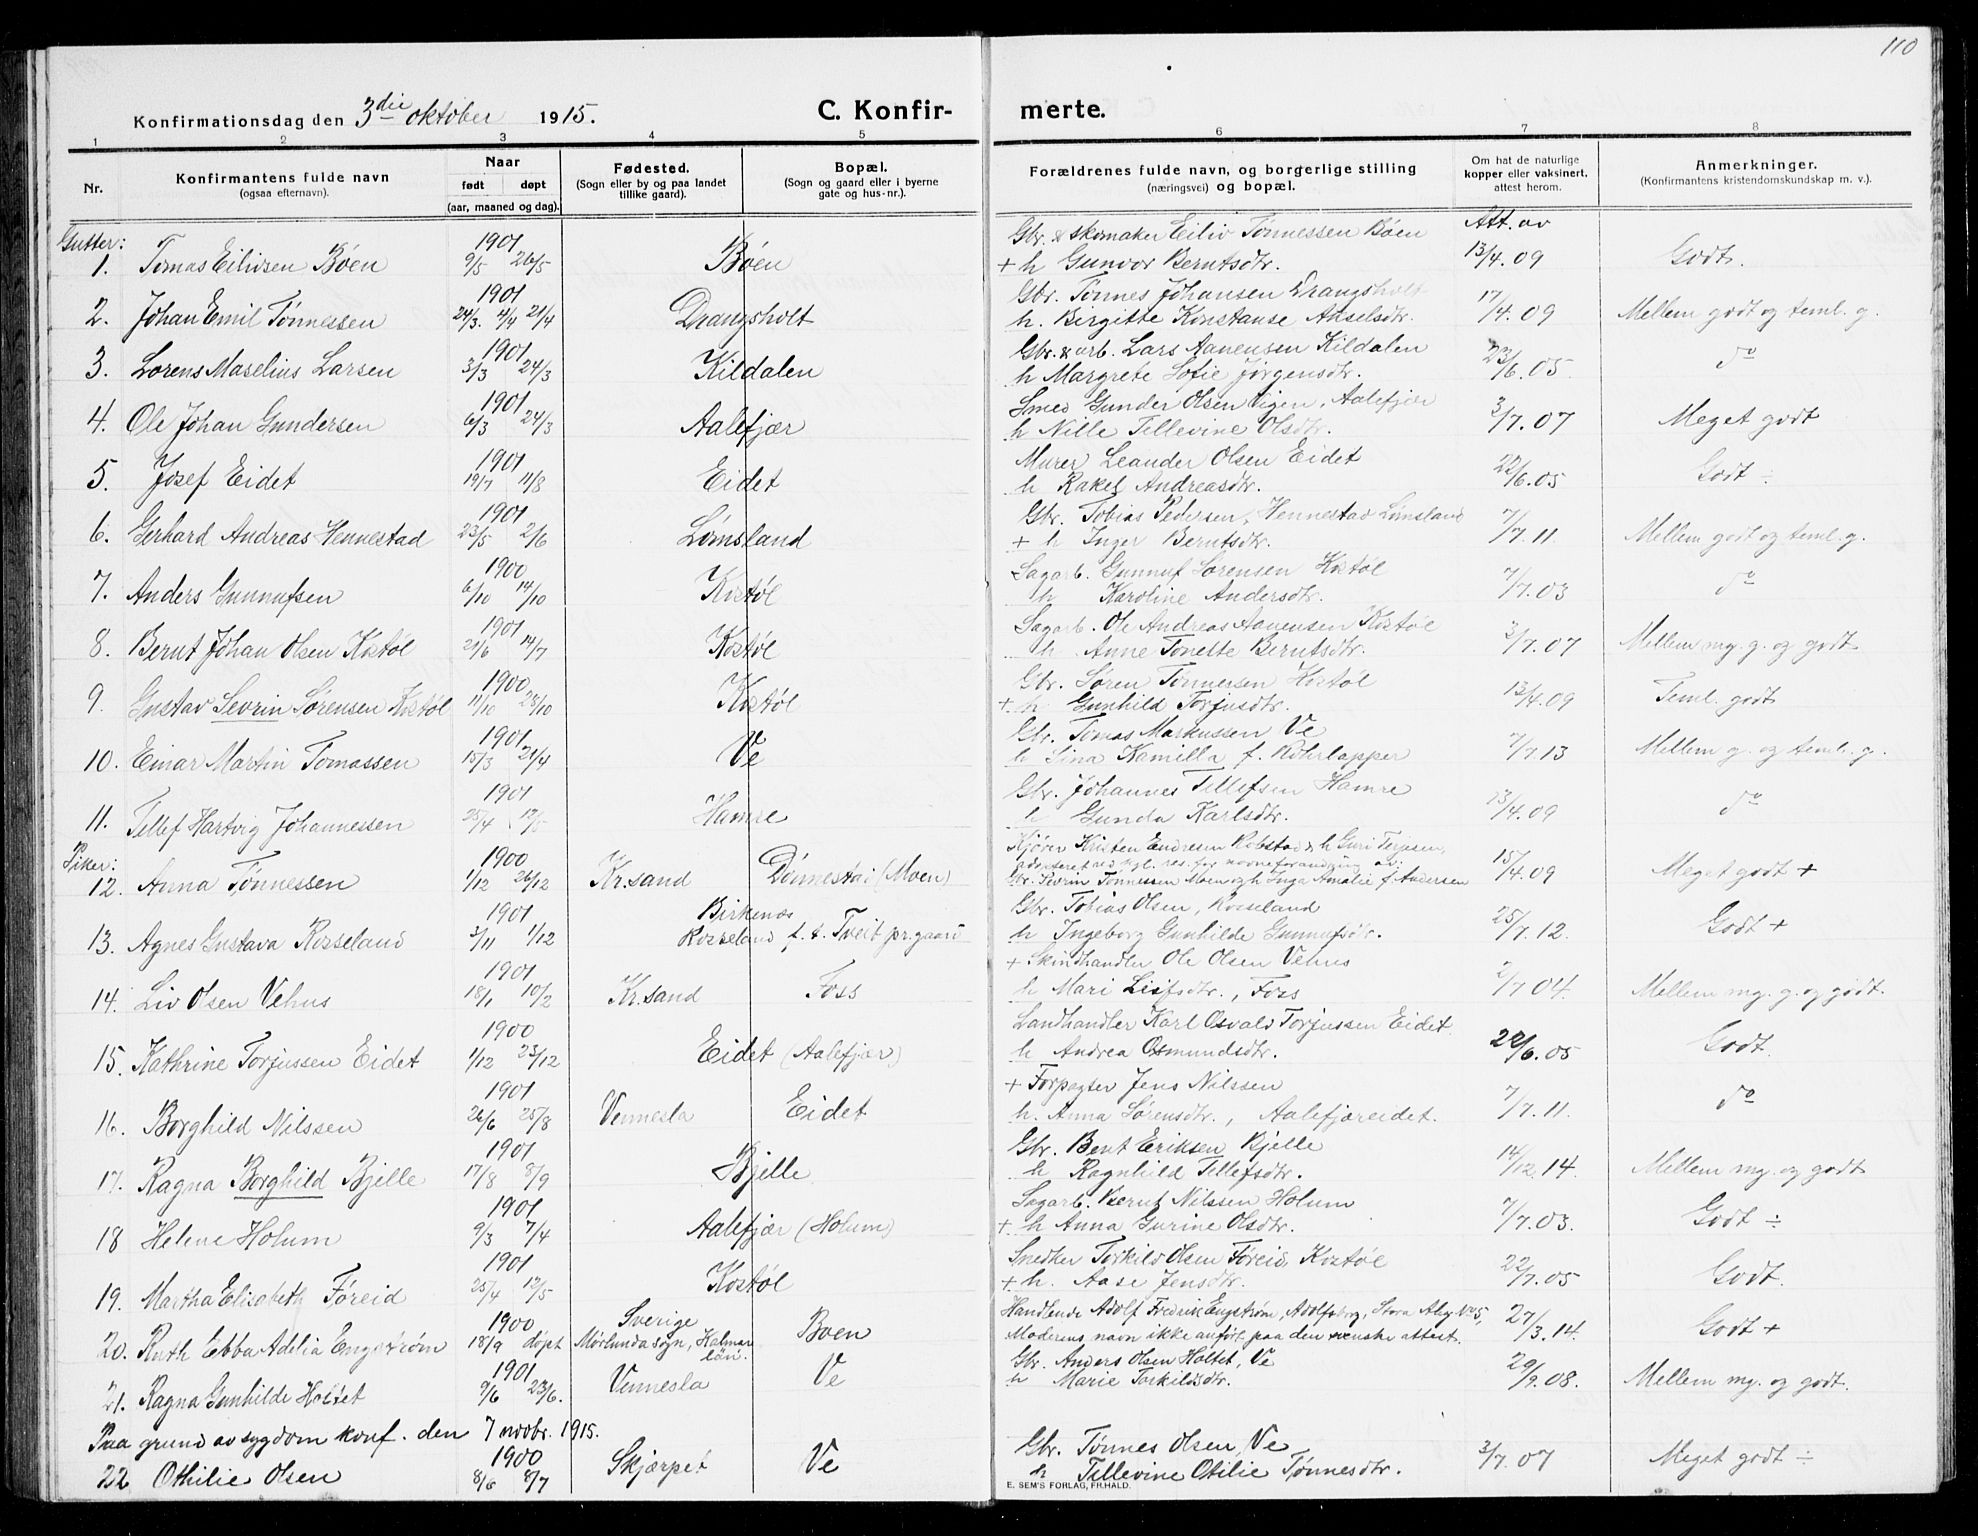 110
Konfirmationsdag den 3die oktober 1915.
C. Konfirmerte.
1 2 3 4 5 6 7 8
Nr. Konfirmantens fulde navn (ogsaa efternavn). Naar født døpt (aar, maaned og dag). Fødested. (Sogn eller by og paa landet tillike gaard). Bopæl. (Sogn og gaard eller i byerne gate og hus-nr.). Forældrenes fulde navn, og borgerlige stilling (næringsvei) og bopæl. Om hat de naturlige kopper eller vaksinert, attest herom. Anmerkninger. (Konfirmantens kristendomskundskap m. v.).
Gutter: 1901 Gbr. & skomaker Eiliv Tønnessen Bøen Att. av
1. Tomas Eilivsen Bøen 9/5 26/5 Bøen + h Gunvor Berntsdtr. 13/4.09 Godt.
1901 Gbr. Tønnes Johansen Drangsholt
2. Johan Emil Tønnessen 24/3. 4/4 21/4 Drangsholt h. Birgitte Konstanse Akselsdtr. 17/4.09 Mellem godt og teml. g.
1901 Gbr. & arb. Lars Aanensen Kildalen
3. Lorens Maselius Larsen 3/3 24/3 Kildalen h Margrete Sofie Jørgensdtr. 23/6.05 do
1901 Smed Gunder Olsen Vigen, Aalefjær
4. Ole Johan Gundersen 6/3 24/3 Aalefjær h Nille Tellevine Olsdtr. 3/7.07 Meget godt
1901 Murer Leander Olsen Eidet
5. Josef Eidet 19/7 11/8 Eidet h Rakel Andreasdtr. 22/6.05 Godt ÷
1901 Gbr. Tobias Pedersen, Hennestad Lømsland
6. Gerhard Andreas Hennestad 23/5 2/6 Lømsland + h Inger Berntsdtr. 7/7.11. Mellem godt og teml. g.
1900 Sagarb. Gunnuf Sørensen Kostøl
7. Anders Gunnufsen 6/10 14/10 Kostøl h Karoline Andersdtr. 7/7.03 do
1901 Sagarb. Ole Andreas Aanensen Kostøl
8. Bernt Johan Olsen Kostøl 21/6 14/7 Kostøl h Anne Tonette Berntsdtr. 3/7.07 Mellem my. g. og godt
1900 Gbr. Søren Tønnesen Kostøl
9. Gustav Sevrin Sørensen Kostøl 11/10 23/10 Kostøl + h Gunhild Torjusdtr. 13/4.09 Teml. godt
1901 Gbr. Tomas Markussen Ve
10. Einar Martin Tomassen 15/3 21/4 Ve h Sina Kamilla f. Rohrlapper 7/7.13 Mellem g. og teml. g.
1901 Gbr. Johannes Tellefsen Hamre
11. Tellef Hartvig Johannessen 25/4 12/5 Hamre h Gunda Karlsdtr. 13/4.09 do
Piker: 1900 Kjører Kristen Endresen Robstad & h Guri Terjesen,
adopteret ved kgl. res. for navneforandring av:
12. Anna Tønnessen 1/12 26/12 Kr.sand Dønnestad (Moen) Gbr. Sevrin Tønnessen Moen og h Inga Amalie f. Andersen 15/4.09 Meget godt +
1901 Birkenæs Gbr. Tobias Olsen, Rosseland
13. Agnes Gustava Rosseland 3/11 1/12 Rosseland f. t. Tveit pr.gaard h Ingeborg Gunhilde Gunnufsdtr. 25/7.12. Godt +
1901 + Skindhandler Ole Olsen Vehus
14. Liv Olsen Vehus 18/1 10/2 Kr.sand Foss h Mari Leifsdtr., Foss 2/7 04. Mellem my. g. og godt.
1900 Landhandler Karl Osvald Torjussen Eidet
15. Kathrine Torjussen Eidet 1/12 23/12 Eidet (Aalefjær) h Andrea Osmundsdtr. 22/6.05 Godt.
1901 + Forpagter Jens Nilssen
16. Borghild Nilssen 26/6 25/8 Vennesla Eidet h. Anna Sørensdtr., Aalefjæreidet. 7/7.11. do
1901 Gbr. Bent Eriksen Bjelle
17. Ragna Borghild Bjelle 17/8 8/9 Bjelle h Ragnhild Tellefsdtr. 14/12.14. Mellem my. og godt
1901 Sagarb. Bernt Nilssen Holum
18 Helene Holum 9/3 7/4 Aalefjær (Holum) + h Anna Gurine Olsdtr. 7/7.03. Godt ÷
1901 Snedker Torkild Olsen Føreid, Kostøl
19. Martha Elisabeth Føreid 25/4 12/5 Kostøl + h. Aase Jensdtr. 22/7.05 Godt.
1900 Sverige Handlende Adolf Fredrik Engstrøm, Adolfsberg, Stora Aby No 5,
20. Ruth Ebba Adelia Engstrøm 18/9 døpt Mørlunda sogn, Kalmar län. Boen Moderens navn ikke anført paa den svenske attest. 27/3.14. Godt +
1901 Gbr. Anders Olsen Holtet, Ve
21. Ragna Gunhilde Holtet 9/6 23/6. Vennesla Ve h Marie Torkildsdtr. 29/9.08. Mellem my. og godt.
Paa grund av sygdom konf. den 7 novbr. 1915.
1900 Gbr. Tønnes Olsen, Ve
22 Othilie Olsen 8/6 8/7 Skjærpet Ve h Tellevine Otilie Tønnesdtr. 3/7.07 Meget godt ÷
E. SEM'S FORLAG, FR.HALD.